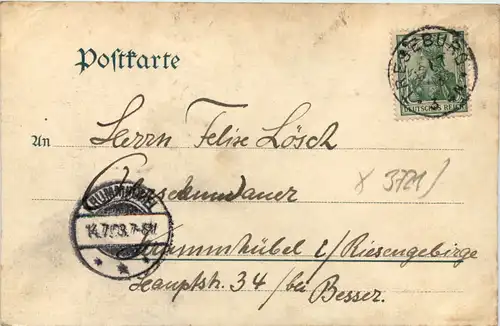 Postkarte
DEUTSCHES REICH
An Herrn Felix Lösch
x 3721)
14.7.03. 7-8N
Krummhübel i/Riesengebirge
Hauptstr. 34 / bei Besser.